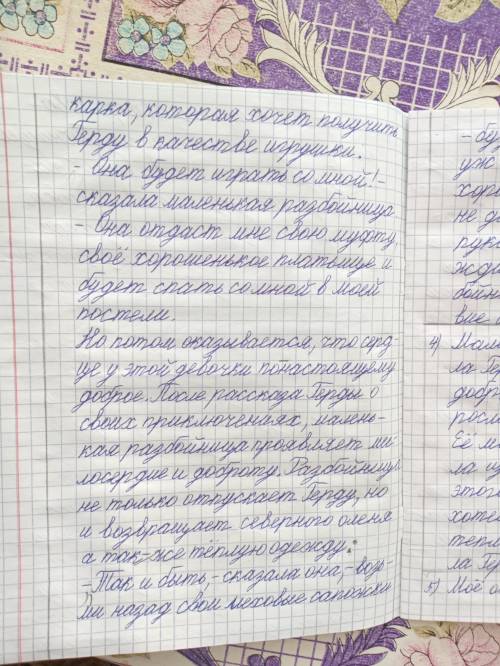 карка, которая хочет получить
Герду в качестве игрушки.
- Она будет играть со мной! -
сказала маленькая разбойница
- Она отдаст мне свою муфту,
своё хорошенькое платьице и
будет спать со мной в моей
постели.
Но потом оказывается, что серд-
це у этой девочки понастоящему
доброе. После рассказа Герды о
своих приключениях, малень-
кая разбойница проявляет ми-
лосердие и доброту. Разбойница
не только отпускает Герду, но
и возвращает северного оленя
а так-же тёплую одежду:
- Так и быть, - сказала она, - возь-
ми назад свои меховые сапожки
- бу
уж
хор
не д
рука
жди
бойн
вие
4) Мал
ла Ге
добр
росл
Её м
ла из
этог
хоте
тепл
ла Ге
5) Моё о